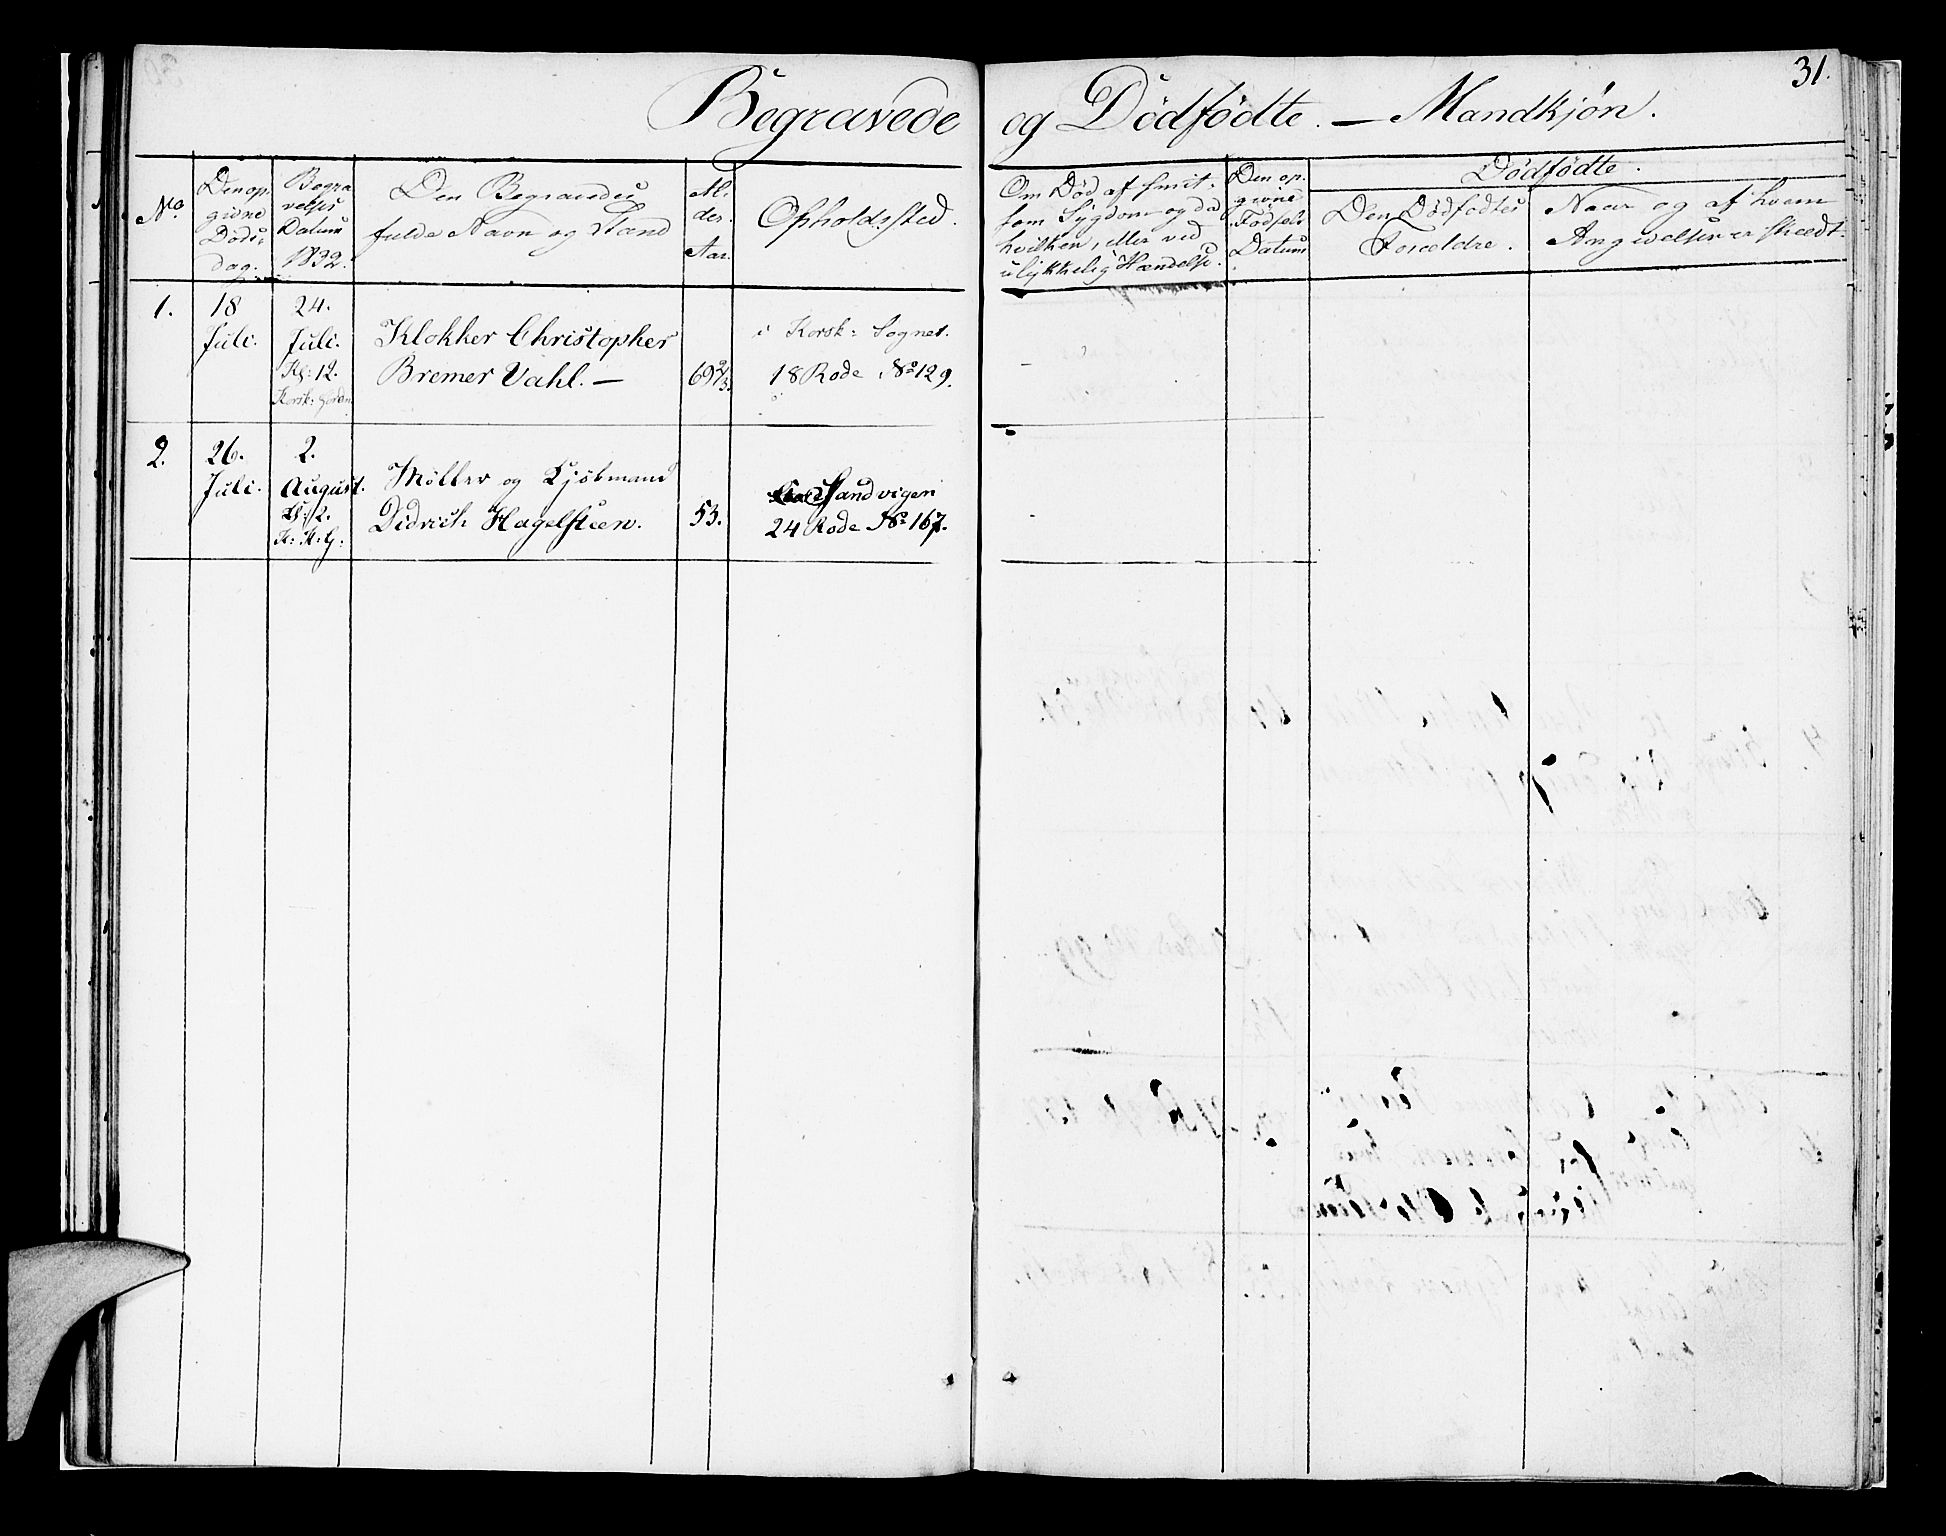 31.
Begravede og Dödfödte. — Mandkjön.
No.
Den op-
givne
Döds-
dag.
Begra-
velses
Datum
1832.
Den Begravedes
fulde Navn og Stand
Al-
der.
Aar.
Opholdssted.
Om Död af smit-
som Sygdom og da
hvilken, eller ved
ulykkelig Hændelse.
Den op-
givne
Födsels
Datum
Dödfödte.
Den Dödfödtes
Forældre.
Naar og af hvem
Angivelsen er skeedt.
1.
18
Juli.
24.
Juli.
Kl: 12.
Korsk: Gorden
Klokker Christopher
Bremer Vahl. —
69 2/3.
i Korsk: Sognet.
18 Rode No 129.
2.
26.
Juli.
2.
August.
Kl: 2.
K: K: G:
Möller og Kjöbmand
Didrich Hagelsteen.
53.
Sandvigen
24 Rode No 167.